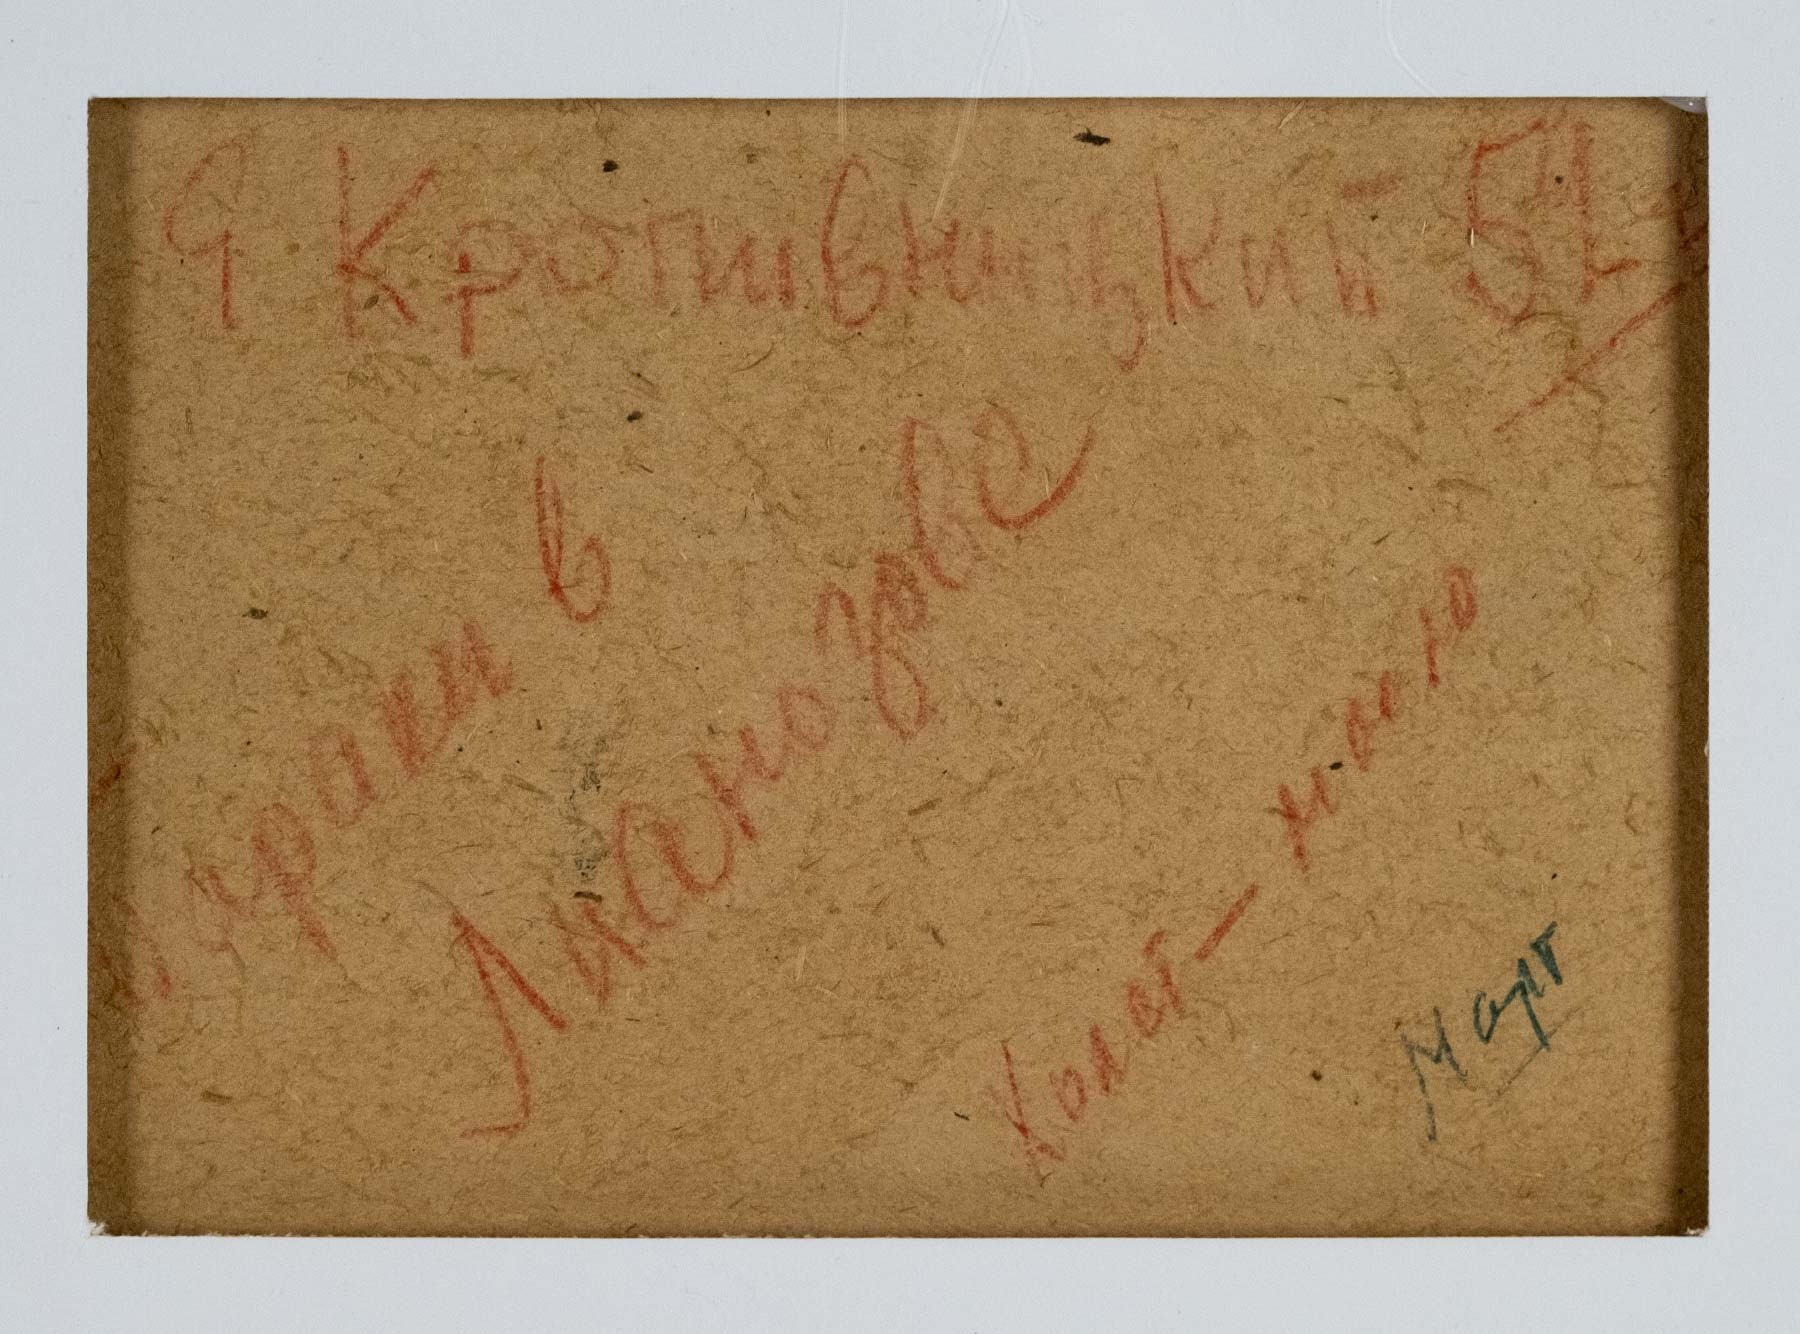 Я Кропивницкий
Бараки в
Лианозове
Холст - масло
Март